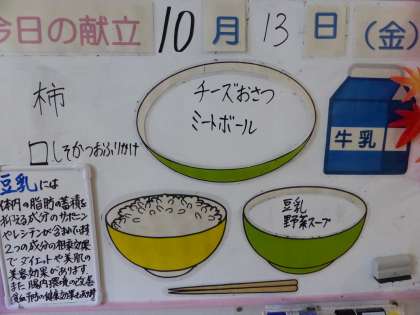 今日の献立 10月13日(金)
柿
チーズおさつ
ミートボール
□しそかつおふりかけ
牛乳
豆乳
野菜スープ
豆乳には
体内の脂肪の蓄積を
抑える成分のサポニン
やレシチンが含まれます
2つの成分の相乗効果
でダイエットや美肌の
美容効果があります
また腸内環境の改善